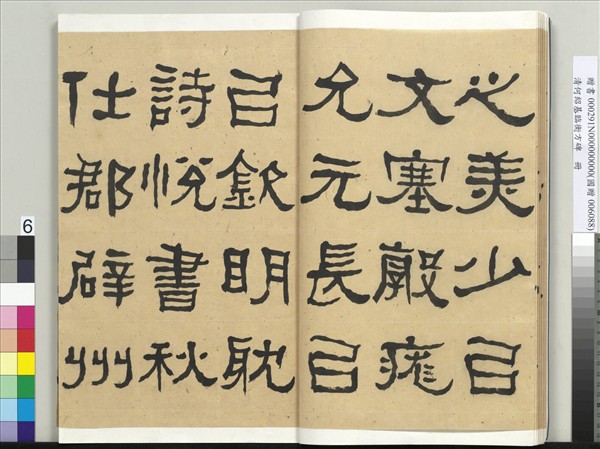 之美少㠯
文塞敦厖
允元長㠯
㠯欽明耽
詩悅書秋
仕郡辟州
贈書 000291N000000000(國贈 006088)
清何紹基臨衡方碑 冊
6